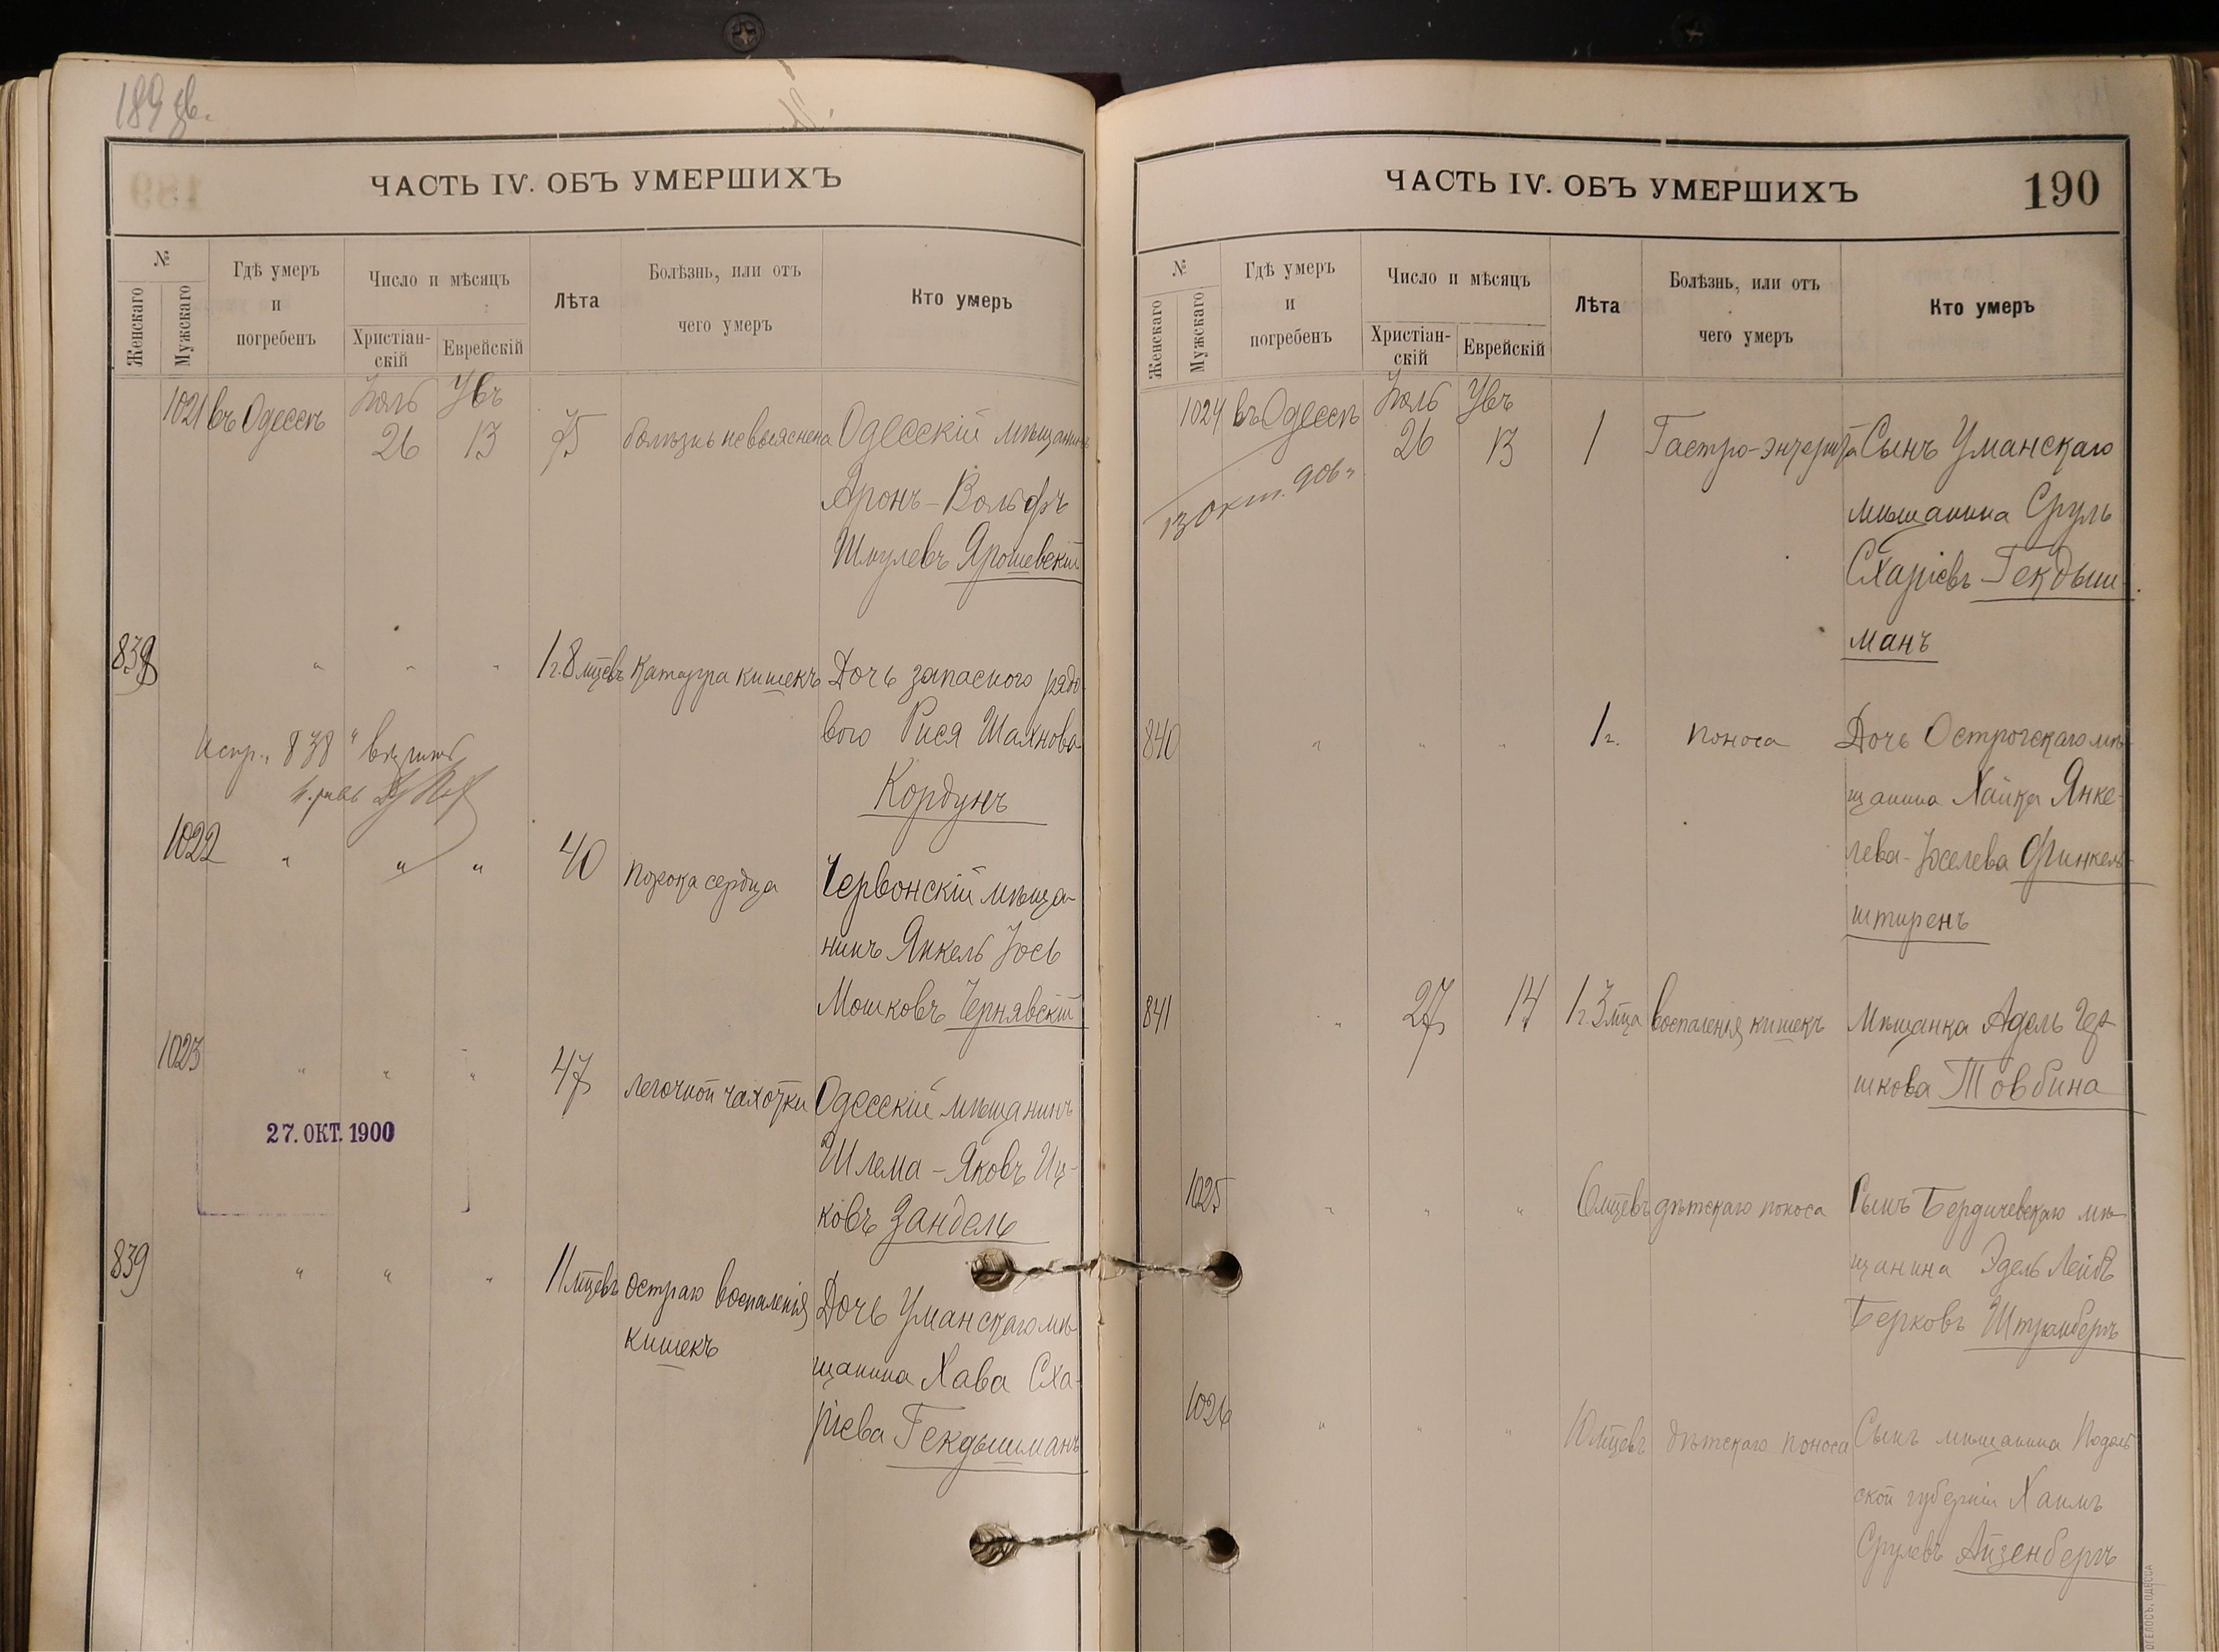 189 зв.
ЧАСТЬ IV. ОБЪ УМЕРШИХЪ
№
Женскаго
Мужскаго
Гдѣ умеръ
и
погребенъ
Число и мѣсяцъ
Христіан-
скій
Еврейскій
Лѣта
Болѣзнь, или отъ
чего умеръ
Кто умеръ
1021 въ Одессѣ Іюль 26 Увъ 13 75 болѣзнь невыяснена Одесскій мѣщанинъ
Аронъ-Вольфъ
Шмулевъ Ярошевскій
838 " " " 1 г. 8 мцевъ Катарра кишекъ Дочь запасного рядо-
вого Рися Шахнова
Кордунъ
Испр. "838"
1022 " " " 40 порока сердца Червонскій мѣща-
нинъ Янкель Іось
Мошковъ Чернявскій
1023 " " " 47 легочной чахотки Одесскій мѣщанинъ
Шлема-Яковъ Иц-
ковъ Зандель
27. ОКТ. 1900
839 " " " 11 мцевъ остраго воспаленія Дочь Уманскаго мѣ-
кишекъ
щанина Хава Сха-
ріева Гекдышманъ
ЧАСТЬ IV. ОБЪ УМЕРШИХЪ
190
№
Женскаго
Мужскаго
Гдѣ умеръ
и
погребенъ
Число и мѣсяцъ
Христіан-
скій
Еврейскій
Лѣта
Болѣзнь, или отъ
чего умеръ
Кто умеръ
1024 въ Одессѣ Іюль 26 Увъ 13 1 Гастро-энтерита Сынъ Уманскаго
13 Окт. 906 г.
мѣщанина Сруль
Схаріевъ Гекдыш-
манъ
840 " " " 1 г. поноса Дочь Острогскаго мѣ-
щанина Хайка Янке-
лева-Іоселева Финкель-
штиренъ
841 " 27 14 1 г 3 мца воспаленія кишекъ Мѣщанка Адель Гер-
шкова Товбина
1025 " " " 6 мцевъ дѣтскаго поноса Сынъ Бердичевскаго мѣ-
щанина Эдель Лейбъ
Берковъ
1026 " " " 10 мцевъ дѣтскаго поноса Сынъ мѣщанина Подоль-
ской губерніи Хаимъ
Срулевъ Айзенбергъ